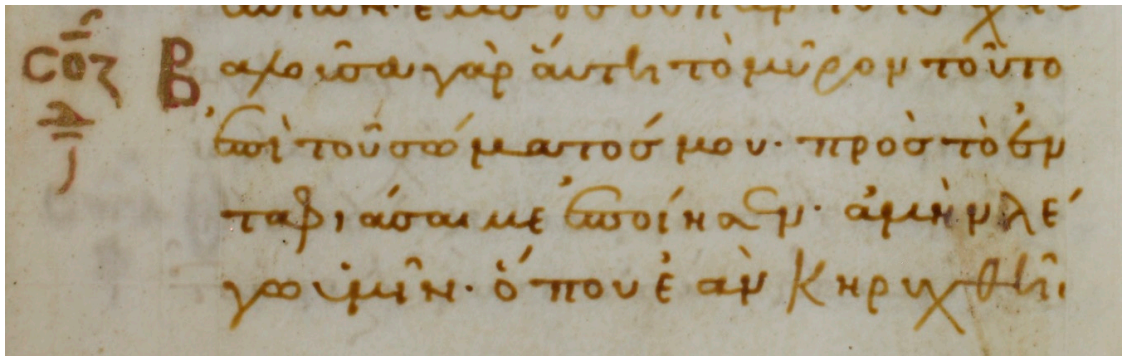 σοζ
δ
Βαλοῦσα γὰρ ἅυτη τὸ μῦρον τοῦτο
ἐπὶ τοῦ σώματόσ μου· πρὸσ τὸ ἐν
ταφιάσαι με ἐποίησεν· ἀμὴν λέ
γω ὑμῖν· ὅπου ἐὰν κηρυχθῆι